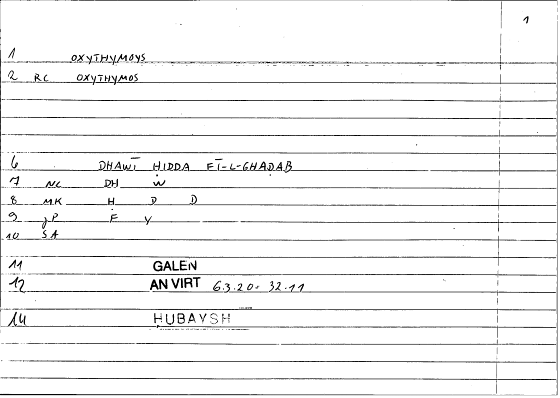 1
1 OXYTHYMOYS
2 RC OXYTHYMOS
6 DHAWĪ HIDDA FĪ-L-GHAḌAB
7 NC DH W
8 MK Ḥ D D
9 JP F Y
10 SA
11 GALEN
12 AN VIRT 6.3.20- 32.11
14 ḤUBAYSH